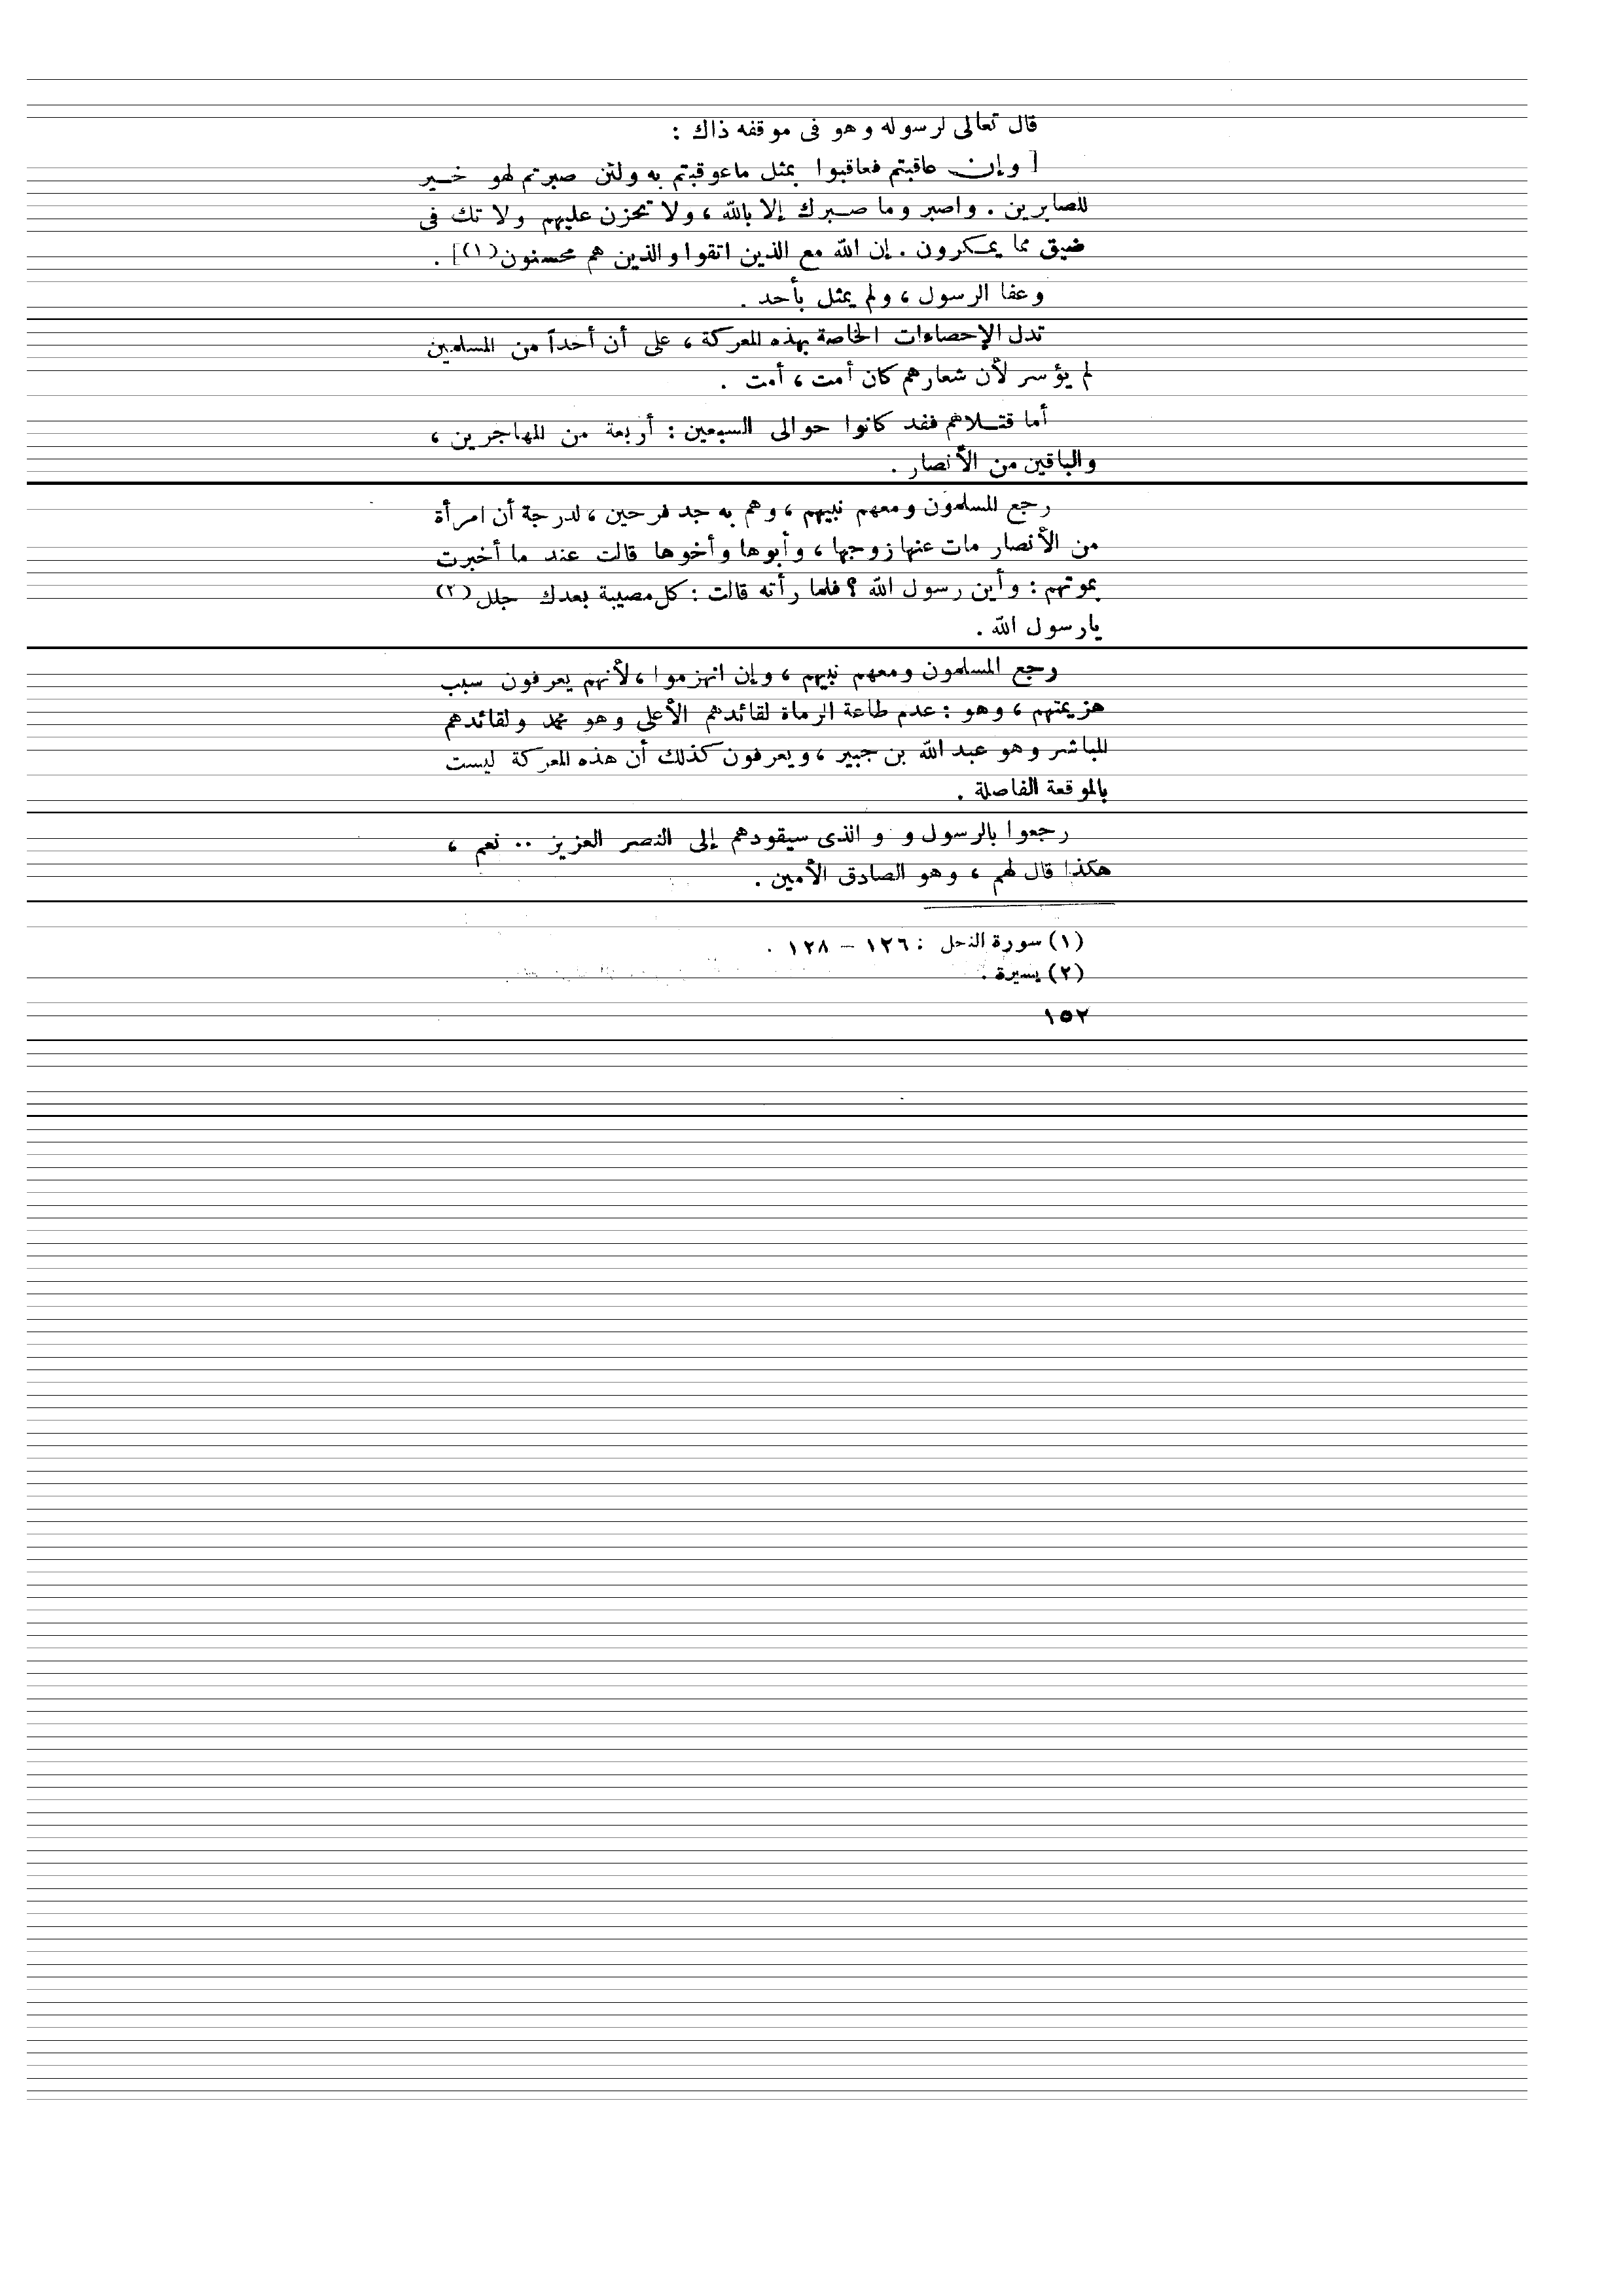 قال تعالى لرسوله وهو فى موقفه ذاك :
[ وإن عاقبتم فعاقبوا بمثل ماعوقبتم به ولئن صبرتم لهو خير
للصابرين . واصبر وما صبرك إلا بالله ، ولا تحزن عليهم ولا تك فى
ضيق مما يمكرون . إن الله مع الذين اتقوا والذين هم محسنون (١) ] .
وعفا الرسول ، ولم يمثل بأحد .
تدل الإحصاءات الخاصة بهذه المعركة ، على أن أحداً من المسلمين
لم يؤسر لأن شعارهم كان أمت ، أمت .
أما قتلاهم فقد كانوا حوالى السبعين : أربعة من المهاجرين ،
والباقين من الأنصار .
رجع المسلمون ومعهم نبيهم ، وهم به جد فرحين ، لدرجة أن امرأة
من الأنصار مات عنها زوجها ، وأبوها وأخوها قالت عند ما أخبرت
بموتهم : وأين رسول الله ؟ فلما رأته قالت : كل مصيبة بعدك جلل (٢)
يارسول الله .
رجع المسلمون ومعهم نبيهم ، وإن انهزموا ، لأنهم يعرفون سبب
هزيمتهم ، وهو : عدم طاعة الرماة لقائدهم الأعلى وهو محمد ولقائدهم
المباشر وهو عبد الله بن جبير ، ويعرفون كذلك أن هذه المعركة ليست
بالموقعة الفاصلة .
رجعوا بالرسول و و الذى سيقودهم إلى النصر العزيز .. نعم ،
هكذا قال لهم ، وهو الصادق الأمين .
(١) سورة النحل : ١٢٦ – ١٢٨ .
(٢) يسيرة .
١٥٢